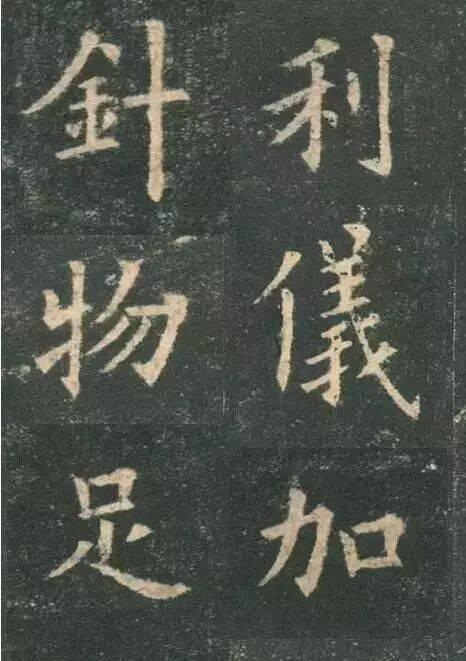 利儀加
針物足